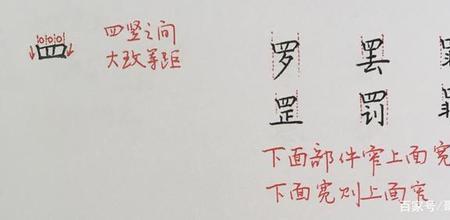 罒
四竖之间
大致等距
罗 罢
罡 罚
下面部件窄上面宽
下面宽则上面窄
百家号/